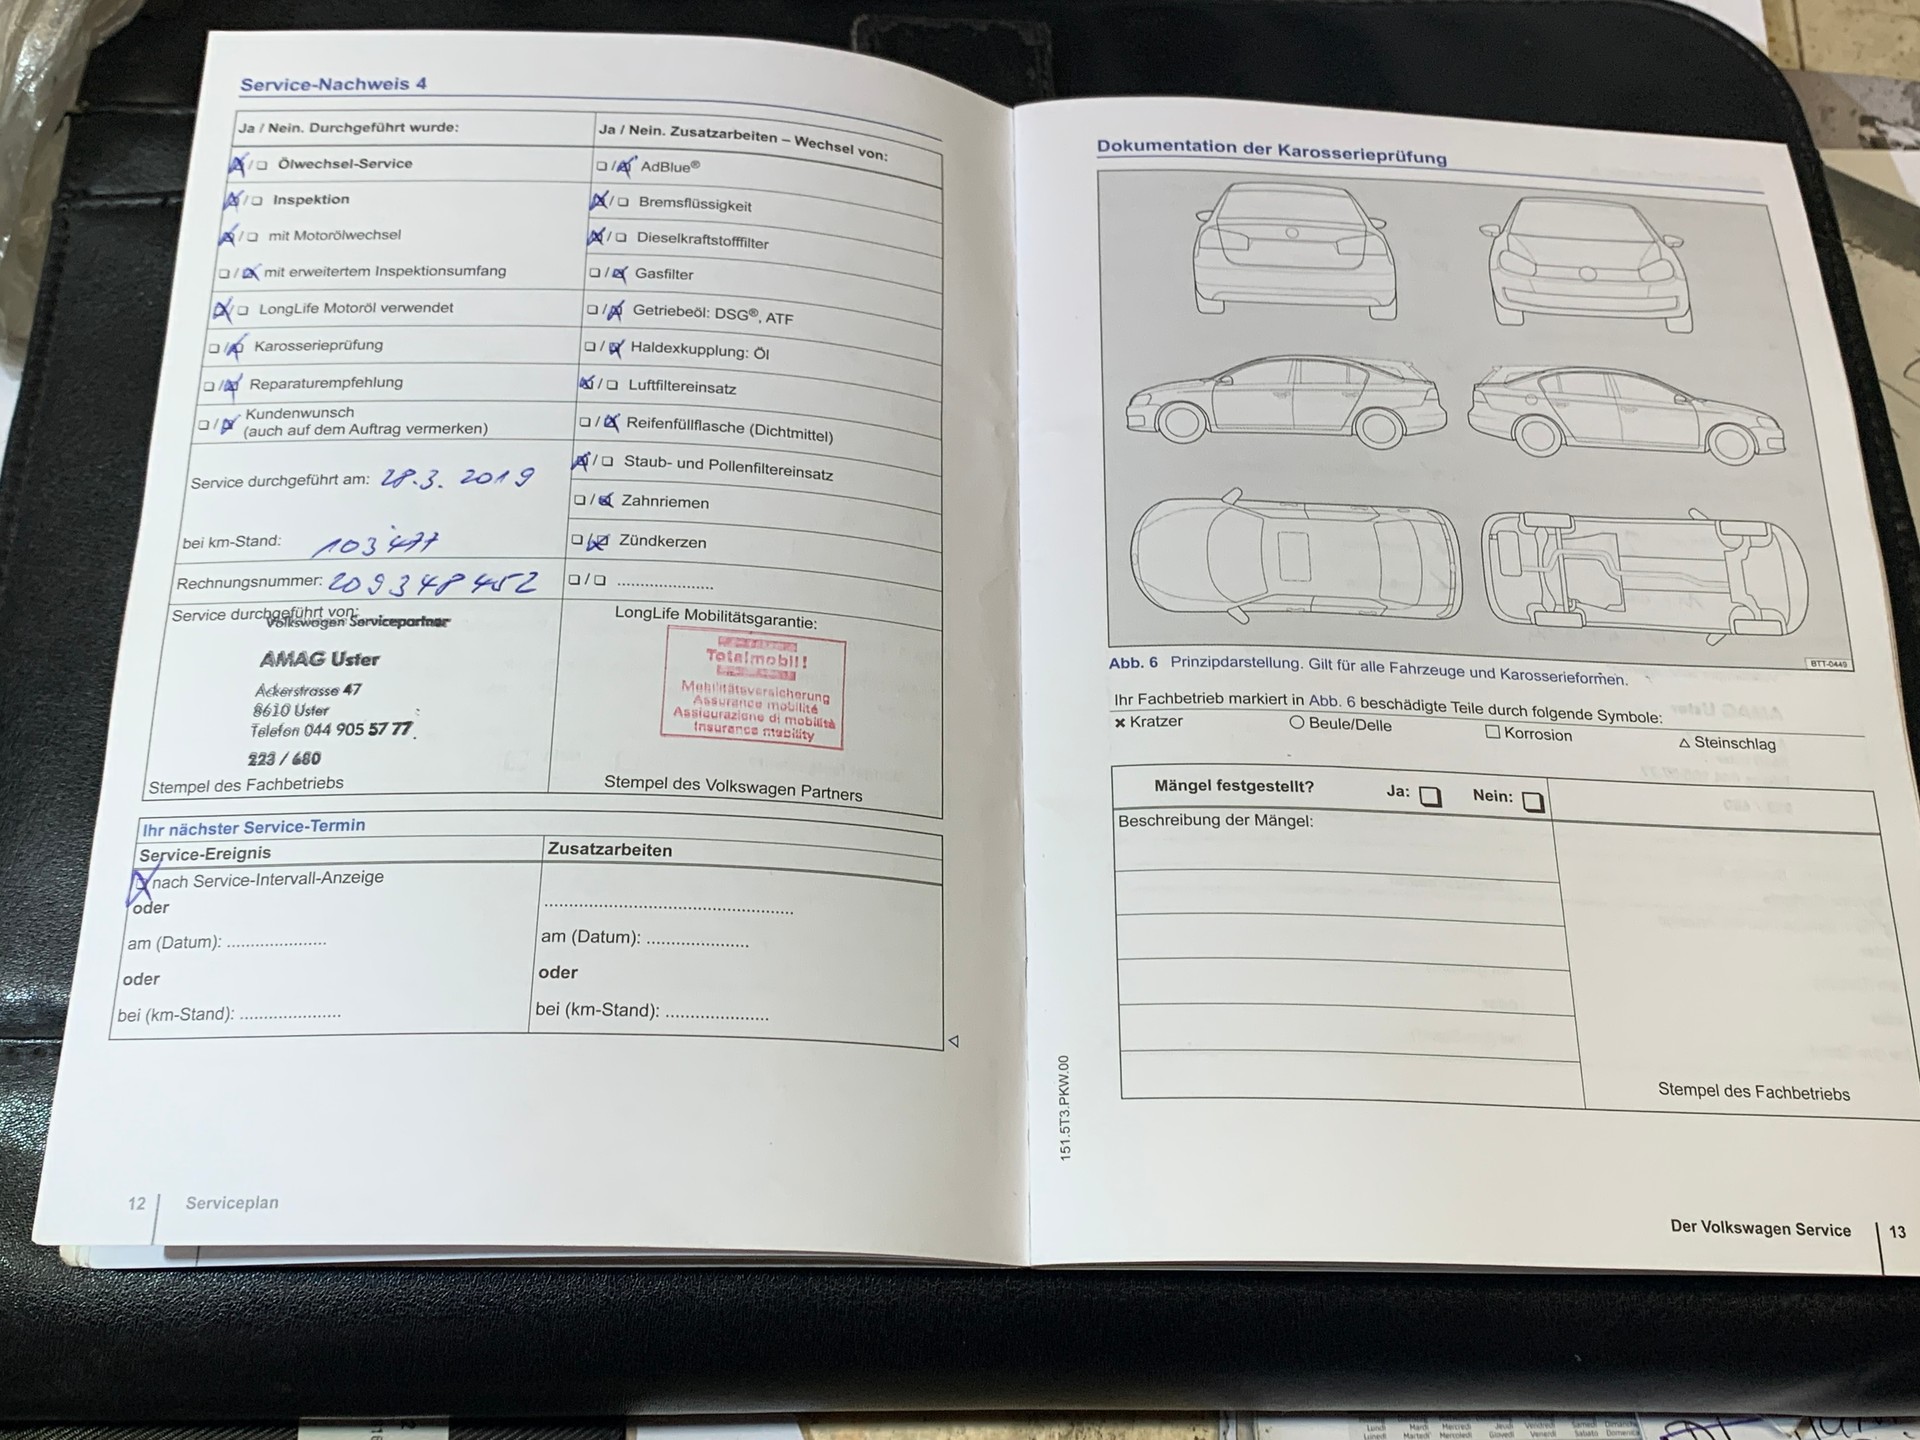 Service-Nachweis 4
Ja / Nein. Durchgeführt wurde:
☒/☐ Ölwechsel-Service
☒/☐ Inspektion
☒/☐ mit Motorölwechsel
☐/☒ mit erweitertem Inspektionsumfang
☒/☐ LongLife Motoröl verwendet
☐/☒ Karosserieprüfung
☐/☒ Reparaturempfehlung
☐/☒ Kundenwunsch
(auch auf dem Auftrag vermerken)
Service durchgeführt am: 28.3.2019
bei km-Stand: 103477
Rechnungsnummer: 209348452
Service durchgeführt von:
Volkswagen Servicepartner
AMAG Uster
Ackerstrasse 47
8610 Uster
Telefon 044 905 57 77
223 / 680
Stempel des Fachbetriebs
Ja / Nein. Zusatzarbeiten – Wechsel von:
☐/☒ AdBlue®
☒/☐ Bremsflüssigkeit
☒/☐ Dieselkraftstofffilter
☐/☒ Gasfilter
☐/☒ Getriebeöl: DSG®, ATF
☐/☒ Haldexkupplung: Öl
☒/☐ Luftfiltereinsatz
☐/☒ Reifenfüllflasche (Dichtmittel)
☒/☐ Staub- und Pollenfiltereinsatz
☐/☒ Zahnriemen
☐/☒ Zündkerzen
☐/☐ .....................
LongLife Mobilitätsgarantie:
Totalmobil!
Mobilitätsversicherung
Assurance mobilité
Assicurazione di mobilità
Insurance mobility
Stempel des Volkswagen Partners
Ihr nächster Service-Termin
Service-Ereignis
☒ nach Service-Intervall-Anzeige
oder
am (Datum): .....................
oder
bei (km-Stand): .....................
Zusatzarbeiten
.....................................................
am (Datum): .....................
oder
bei (km-Stand): .....................
12 Serviceplan
Dokumentation der Karosserieprüfung
BTT-0449
Abb. 6 Prinzipdarstellung. Gilt für alle Fahrzeuge und Karosserieformen.
Ihr Fachbetrieb markiert in Abb. 6 beschädigte Teile durch folgende Symbole:
× Kratzer ○ Beule/Delle □ Korrosion △ Steinschlag
Mängel festgestellt? Ja: ☐ Nein: ☐
Beschreibung der Mängel:
Stempel des Fachbetriebs
151.5T3.PKW.00
Der Volkswagen Service 13
Lundi Mardi Mercredi Jeudi Vendredi Samedi Dimanche
Lunedì Martedì Mercoledì Giovedì Venerdì Sabato Domenica